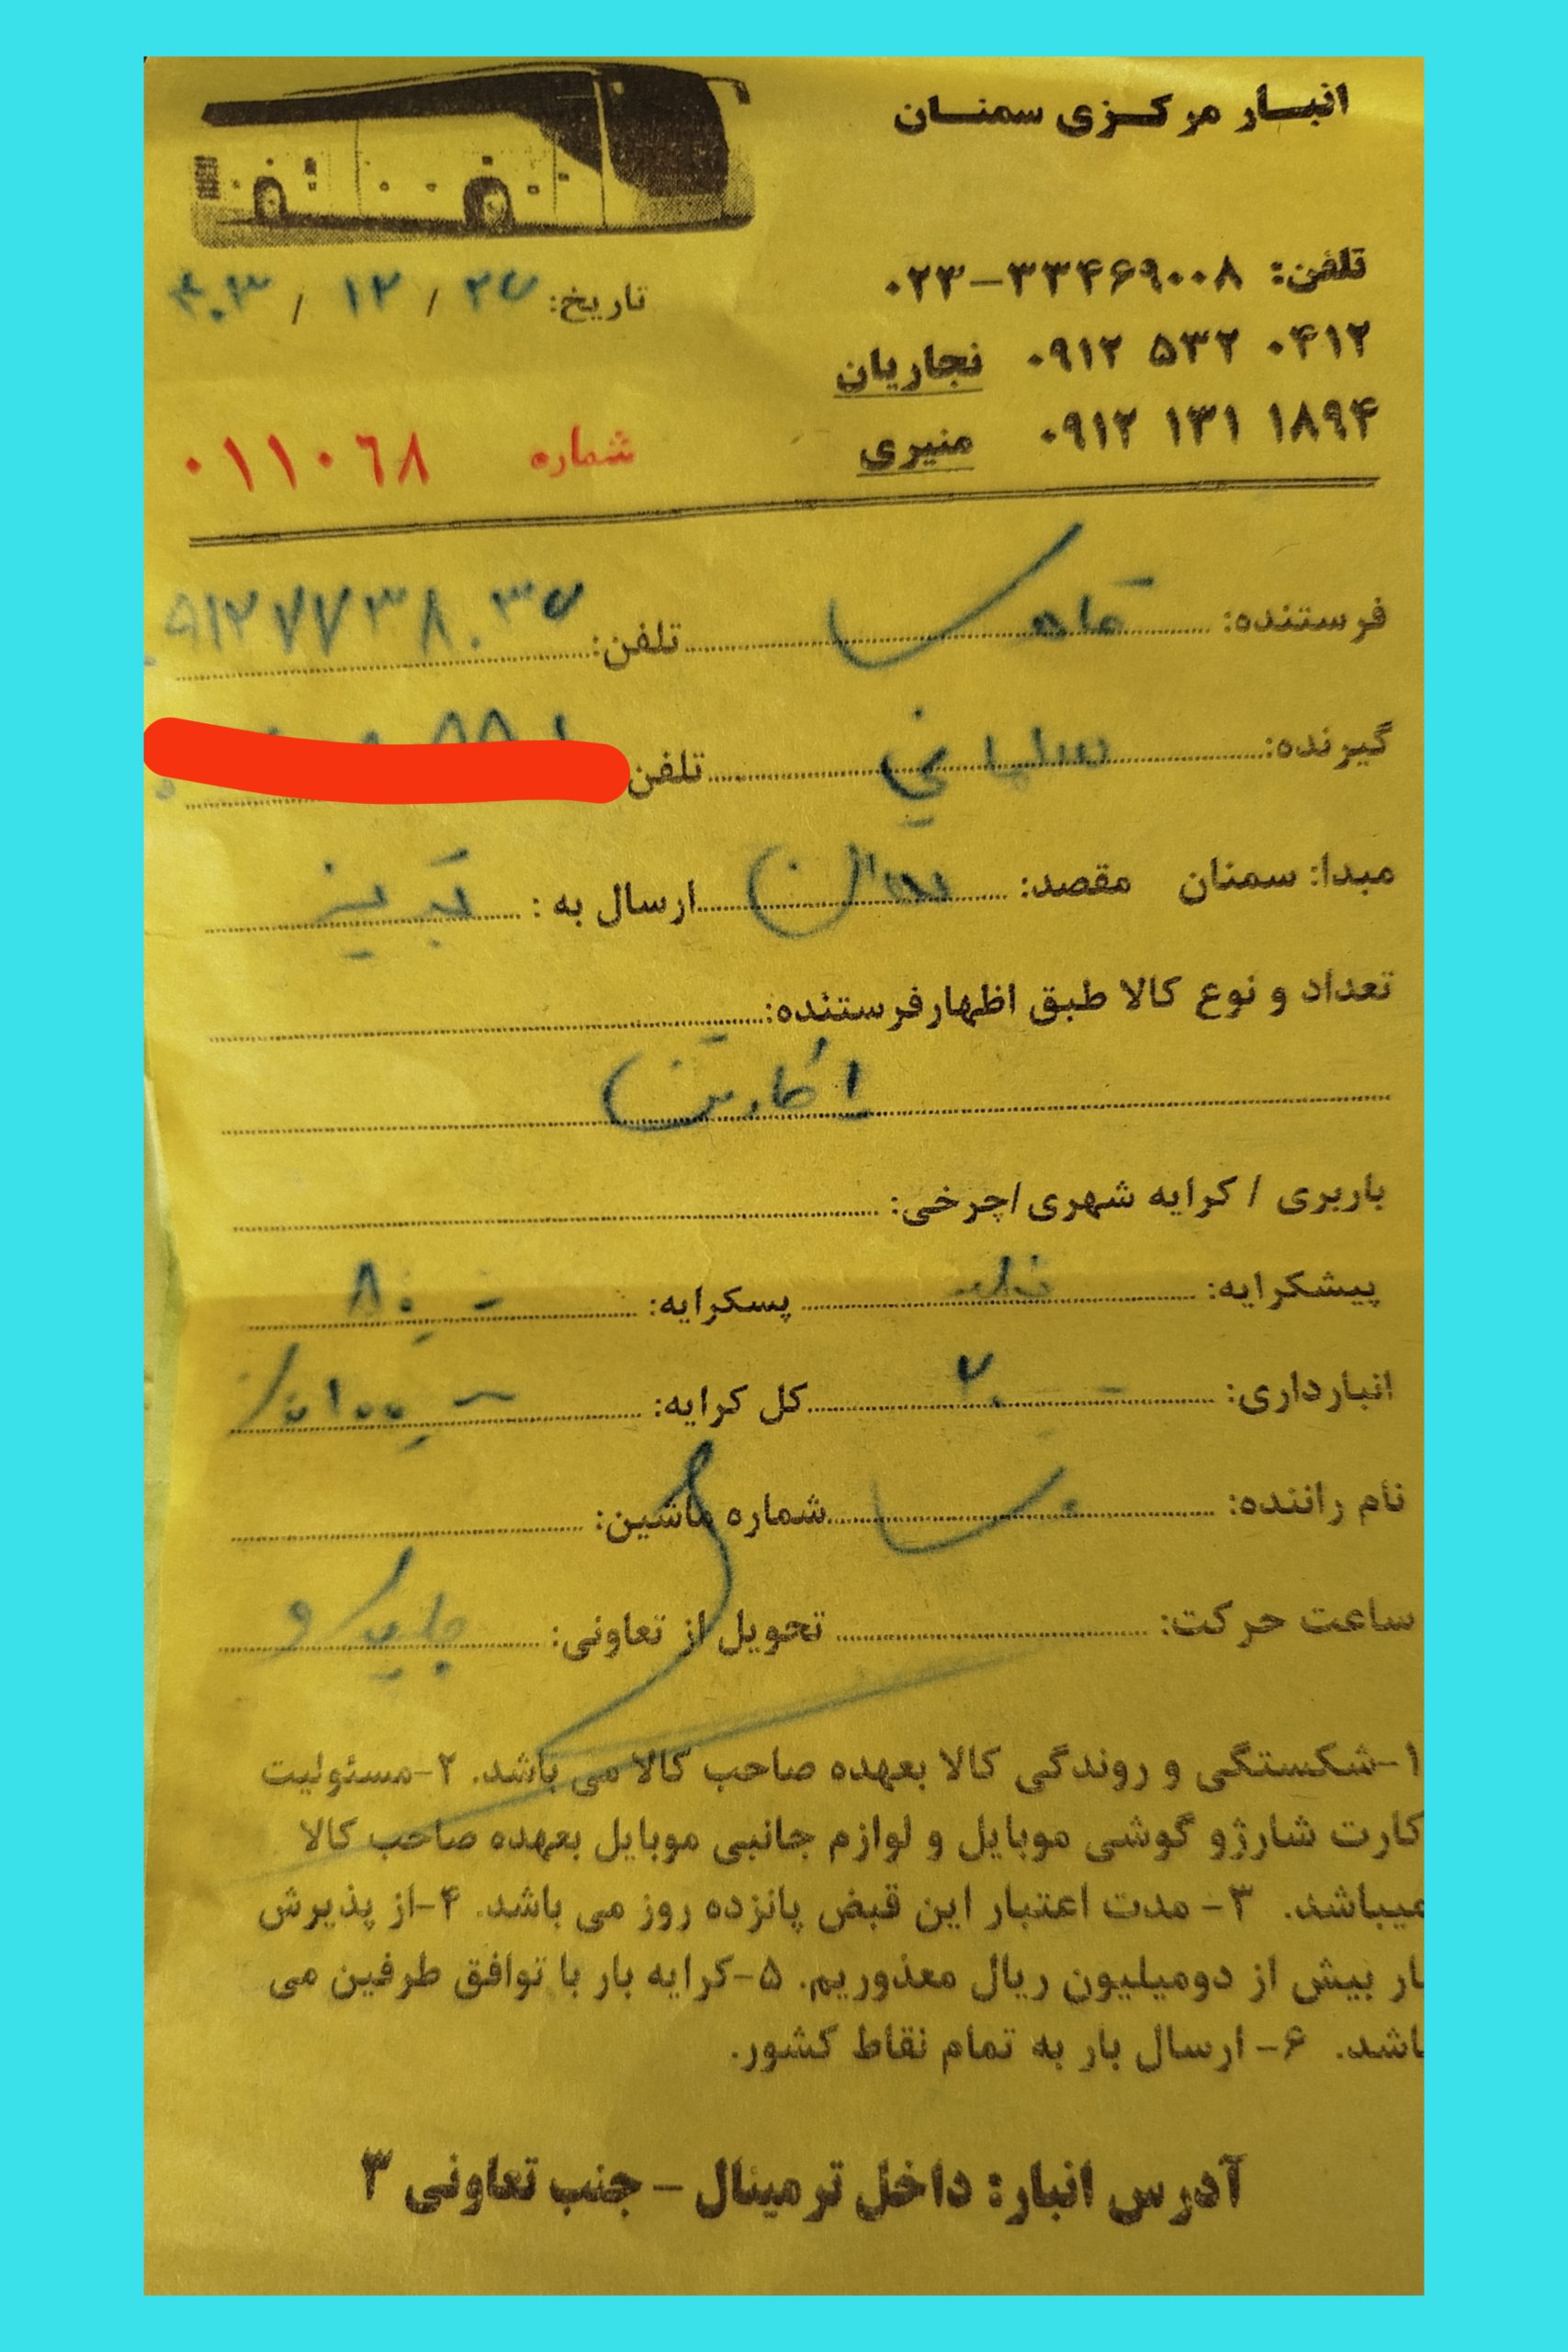 انبار مرکزی سمنان
تلفن: ۰۲۳-۳۳۴۶۹۰۰۸
۰۹۱۲ ۵۳۲ ۰۴۱۲ نجاریان
۰۹۱۲ ۱۳۱ ۱۸۹۴ منیری
تاریخ: ۲۷ / ۱۲ / ۴۰۳
شماره ۰۱۱۰۶۸
فرستنده: تلفن:
گیرنده: سلیمانی تلفن
مبدا: سمنان مقصد: ارسال به : تبریز
تعداد و نوع کالا طبق اظهار فرستنده:
۱ کارتن
باربری / کرایه شهری/چرخی:
پیشکرایه: پسکرایه: ۸۰
انبارداری: ۲۰ کل کرایه:
نام راننده: شماره ماشین:
ساعت حرکت: تحویل از تعاونی:
۱-شکستگی و روندگی کالا بعهده صاحب کالا می باشد. ۲-مسئولیت
کارت شارژو گوشی موبایل و لوازم جانبی موبایل بعهده صاحب کالا
میباشد. ۳- مدت اعتبار این قبض پانزده روز می باشد. ۴-از پذیرش
بار بیش از دومیلیون ریال معذوریم. ۵-کرایه بار با توافق طرفین می
باشد. ۶- ارسال بار به تمام نقاط کشور.
آدرس انبار: داخل ترمینال - جنب تعاونی ۳